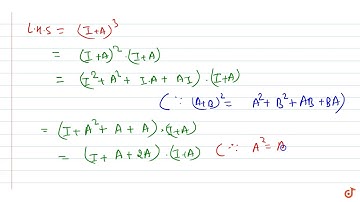 L.H.S = (I+A)³
= (I+A)² · (I+A)
= (I² + A² + I.A + AI) · (I+A)
(∵ (A+B)² = A² + B² + AB + BA)
= (I + A² + A + A) · (I+A)
= (I + A + 2A) · (I+A) (∵ A² = A